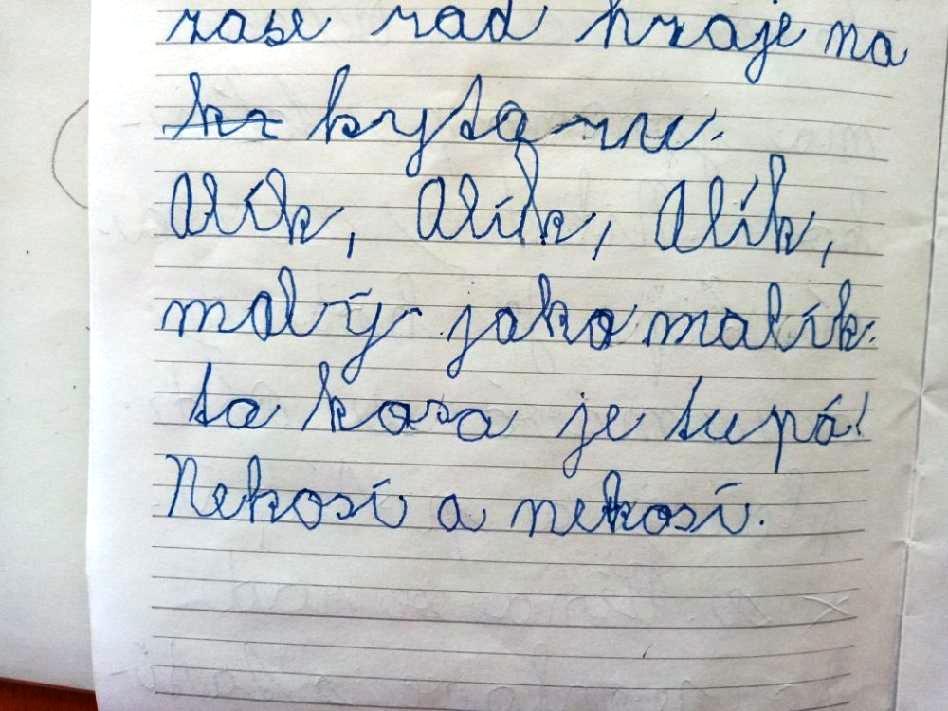 zase rad hraje na
kr kytaru.
Alík, Alík, Alík,
malý jako malík.
ta kosa je tupá!
Nekosí a nekosí.